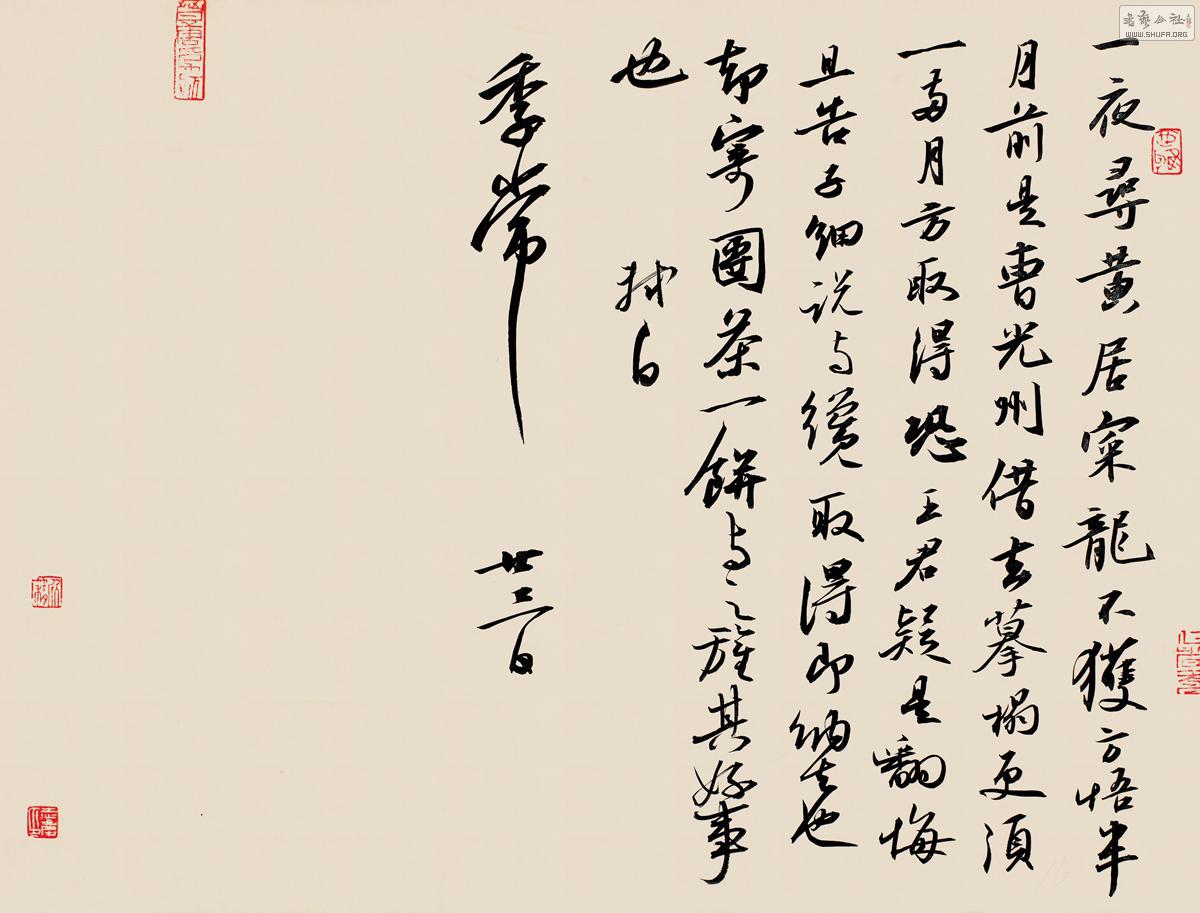 一夜尋黄居寀龍不獲方悟半
月前是曹光州借去摹搨更須
一兩月方取得恐王君疑是翻悔
且告子細説与纔取得即納去也
却寄團茶一餅与之旌其好事
也 軾白
季常 廿三日
書藝公社
WWW.SHUFA.ORG